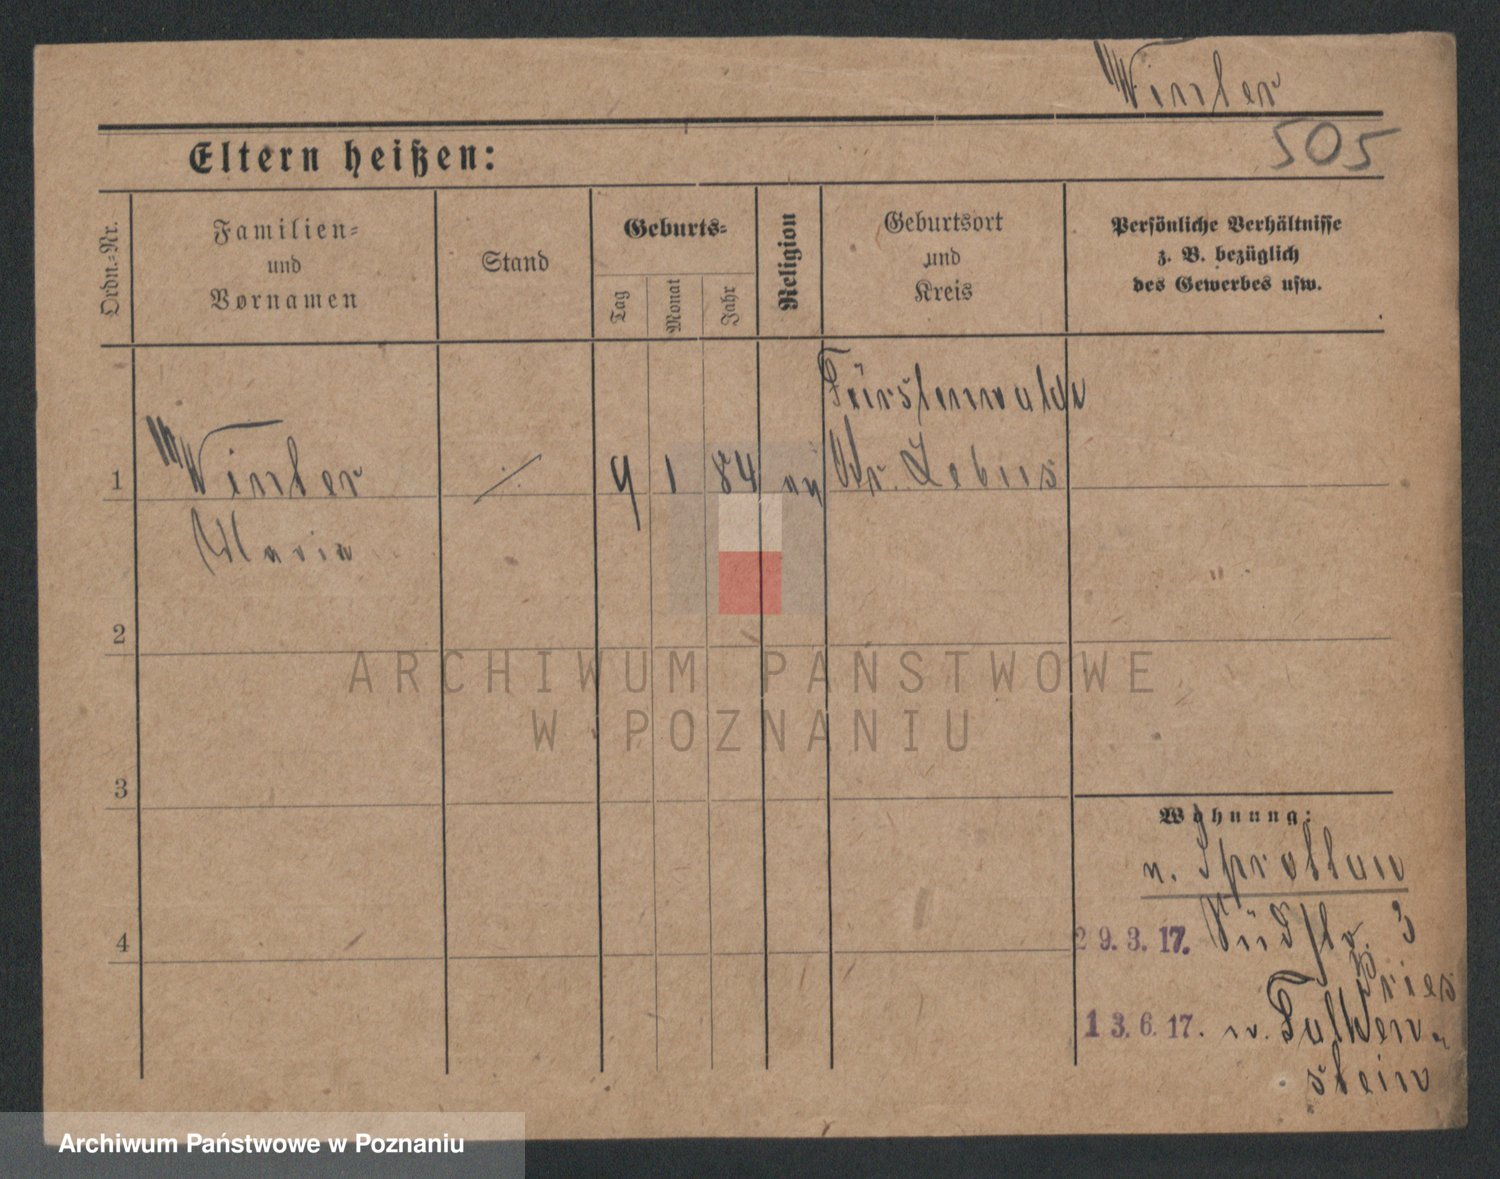 Winter
505
Eltern heißen:
Ordn.-Nr.
Familien-
und
Vornamen
Stand
Geburts-
Tag
Monat
Jahr
Religion
Geburtsort
und
Kreis
Persönliche Verhältnisse
z. B. bezüglich
des Gewerbes usw.
Fürstenwalde
1 Winter 9 1 84 ev Kr. Lebus
Maria
2
3
4
Wohnung:
n. Sprottau
29.3.17. Südstr. 3
Pries
13.6.17. n. Falken-
stein
ARCHIWUM PAŃSTWOWE
W POZNANIU
Archiwum Państwowe w Poznaniu